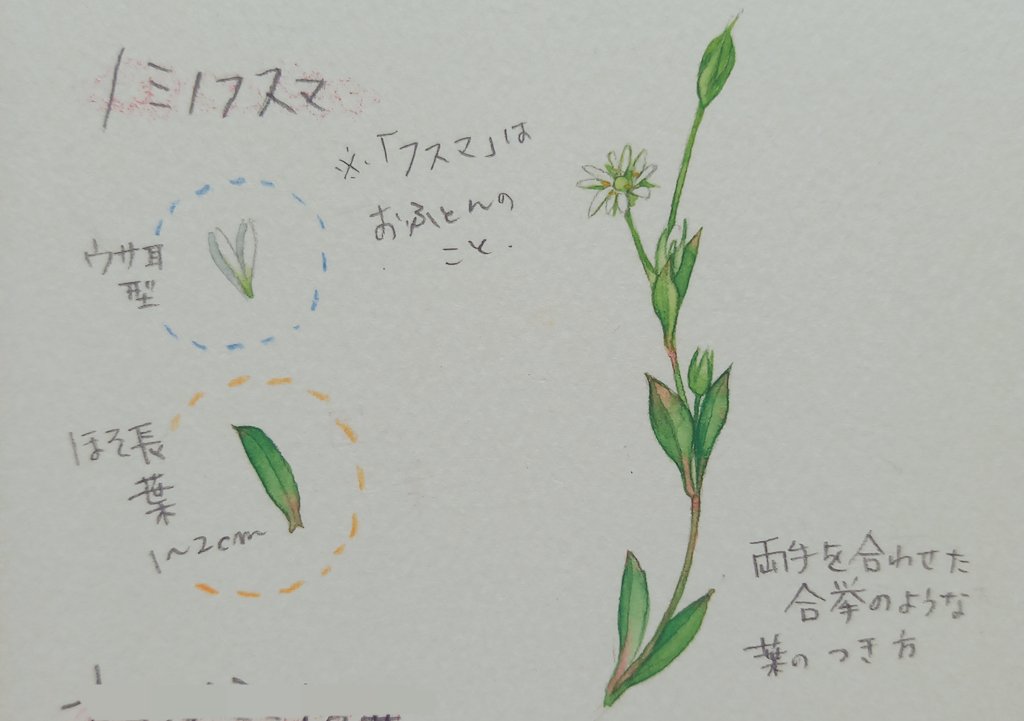 ノミノフスマ
※「フスマ」は
おふとんの
こと.
ウサ耳
型
ほそ長
葉
1〜2cm
両手を合わせた
合挙のような
葉のつき方